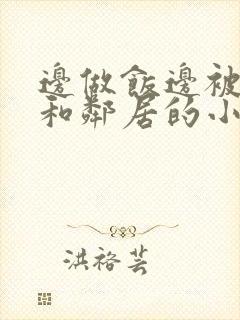 邊做飯邊被
和鄰居的小
洪裕芸